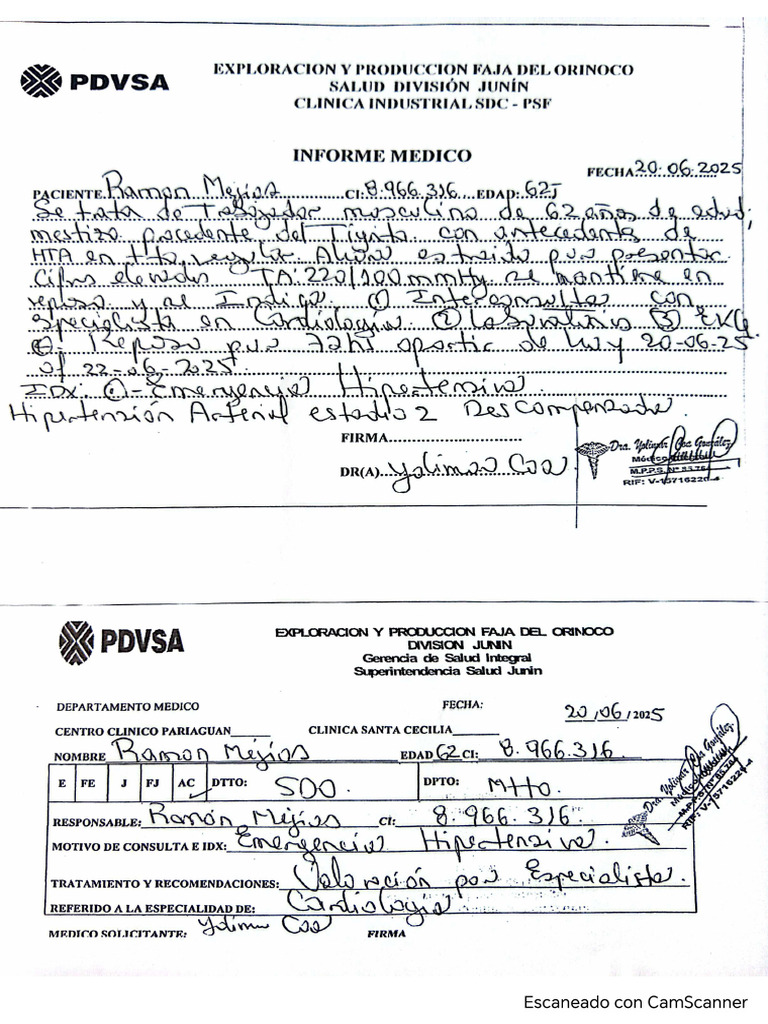 PDVSA
EXPLORACION Y PRODUCCION FAJA DEL ORINOCO
SALUD DIVISIÓN JUNÍN
CLINICA INDUSTRIAL SDC - PSF
INFORME MEDICO
FECHA 20.06.2025
PACIENTE Ramon Mejias CI: 8.966.316 EDAD: 62
Se trata de Trabajador masculino de 62 años de edad;
mestizo procedente del Tigrito con antecedente de
HTA en tto regular. Ahora por presentar
Cifras elevadas TA: 220/100 mmHg se mantiene en
reposo y se Indica. ① Interconsulta con
especialista en Cardiología. ② Laboratorio ③ EKG
④. Reposo por 72h apartir de hoy 20-06-25
al 22-06-2025.
IDx: ①- Emergencia Hipertensiva.
Hipertensión Arterial estadio 2 Descompensada.
FIRMA
DR(A). Yolimar Coa
Dra. Yolimar Coa González
M.P.P.S. Nº
RIF: V-15716220-
PDVSA
EXPLORACION Y PRODUCCION FAJA DEL ORINOCO
DIVISION JUNIN
Gerencia de Salud Integral
Superintendencia Salud Junin
DEPARTAMENTO MEDICO FECHA: 20/06/2025
CENTRO CLINICO PARIAGUAN CLINICA SANTA CECILIA
NOMBRE Ramon Mejias EDAD 62 CI: 8.966.316
E FE J FJ AC DTTO: SDO. DPTO: Mtto.
RESPONSABLE: Ramón Mejias CI: 8.966.316
MOTIVO DE CONSULTA E IDX: Emergencia Hipertensiva.
TRATAMIENTO Y RECOMENDACIONES: Valoración por Especialista.
REFERIDO A LA ESPECIALIDAD DE: Cardiología
MEDICO SOLICITANTE: Yolimar Coa FIRMA
Dra. Yolimar Coa González
Escaneado con CamScanner